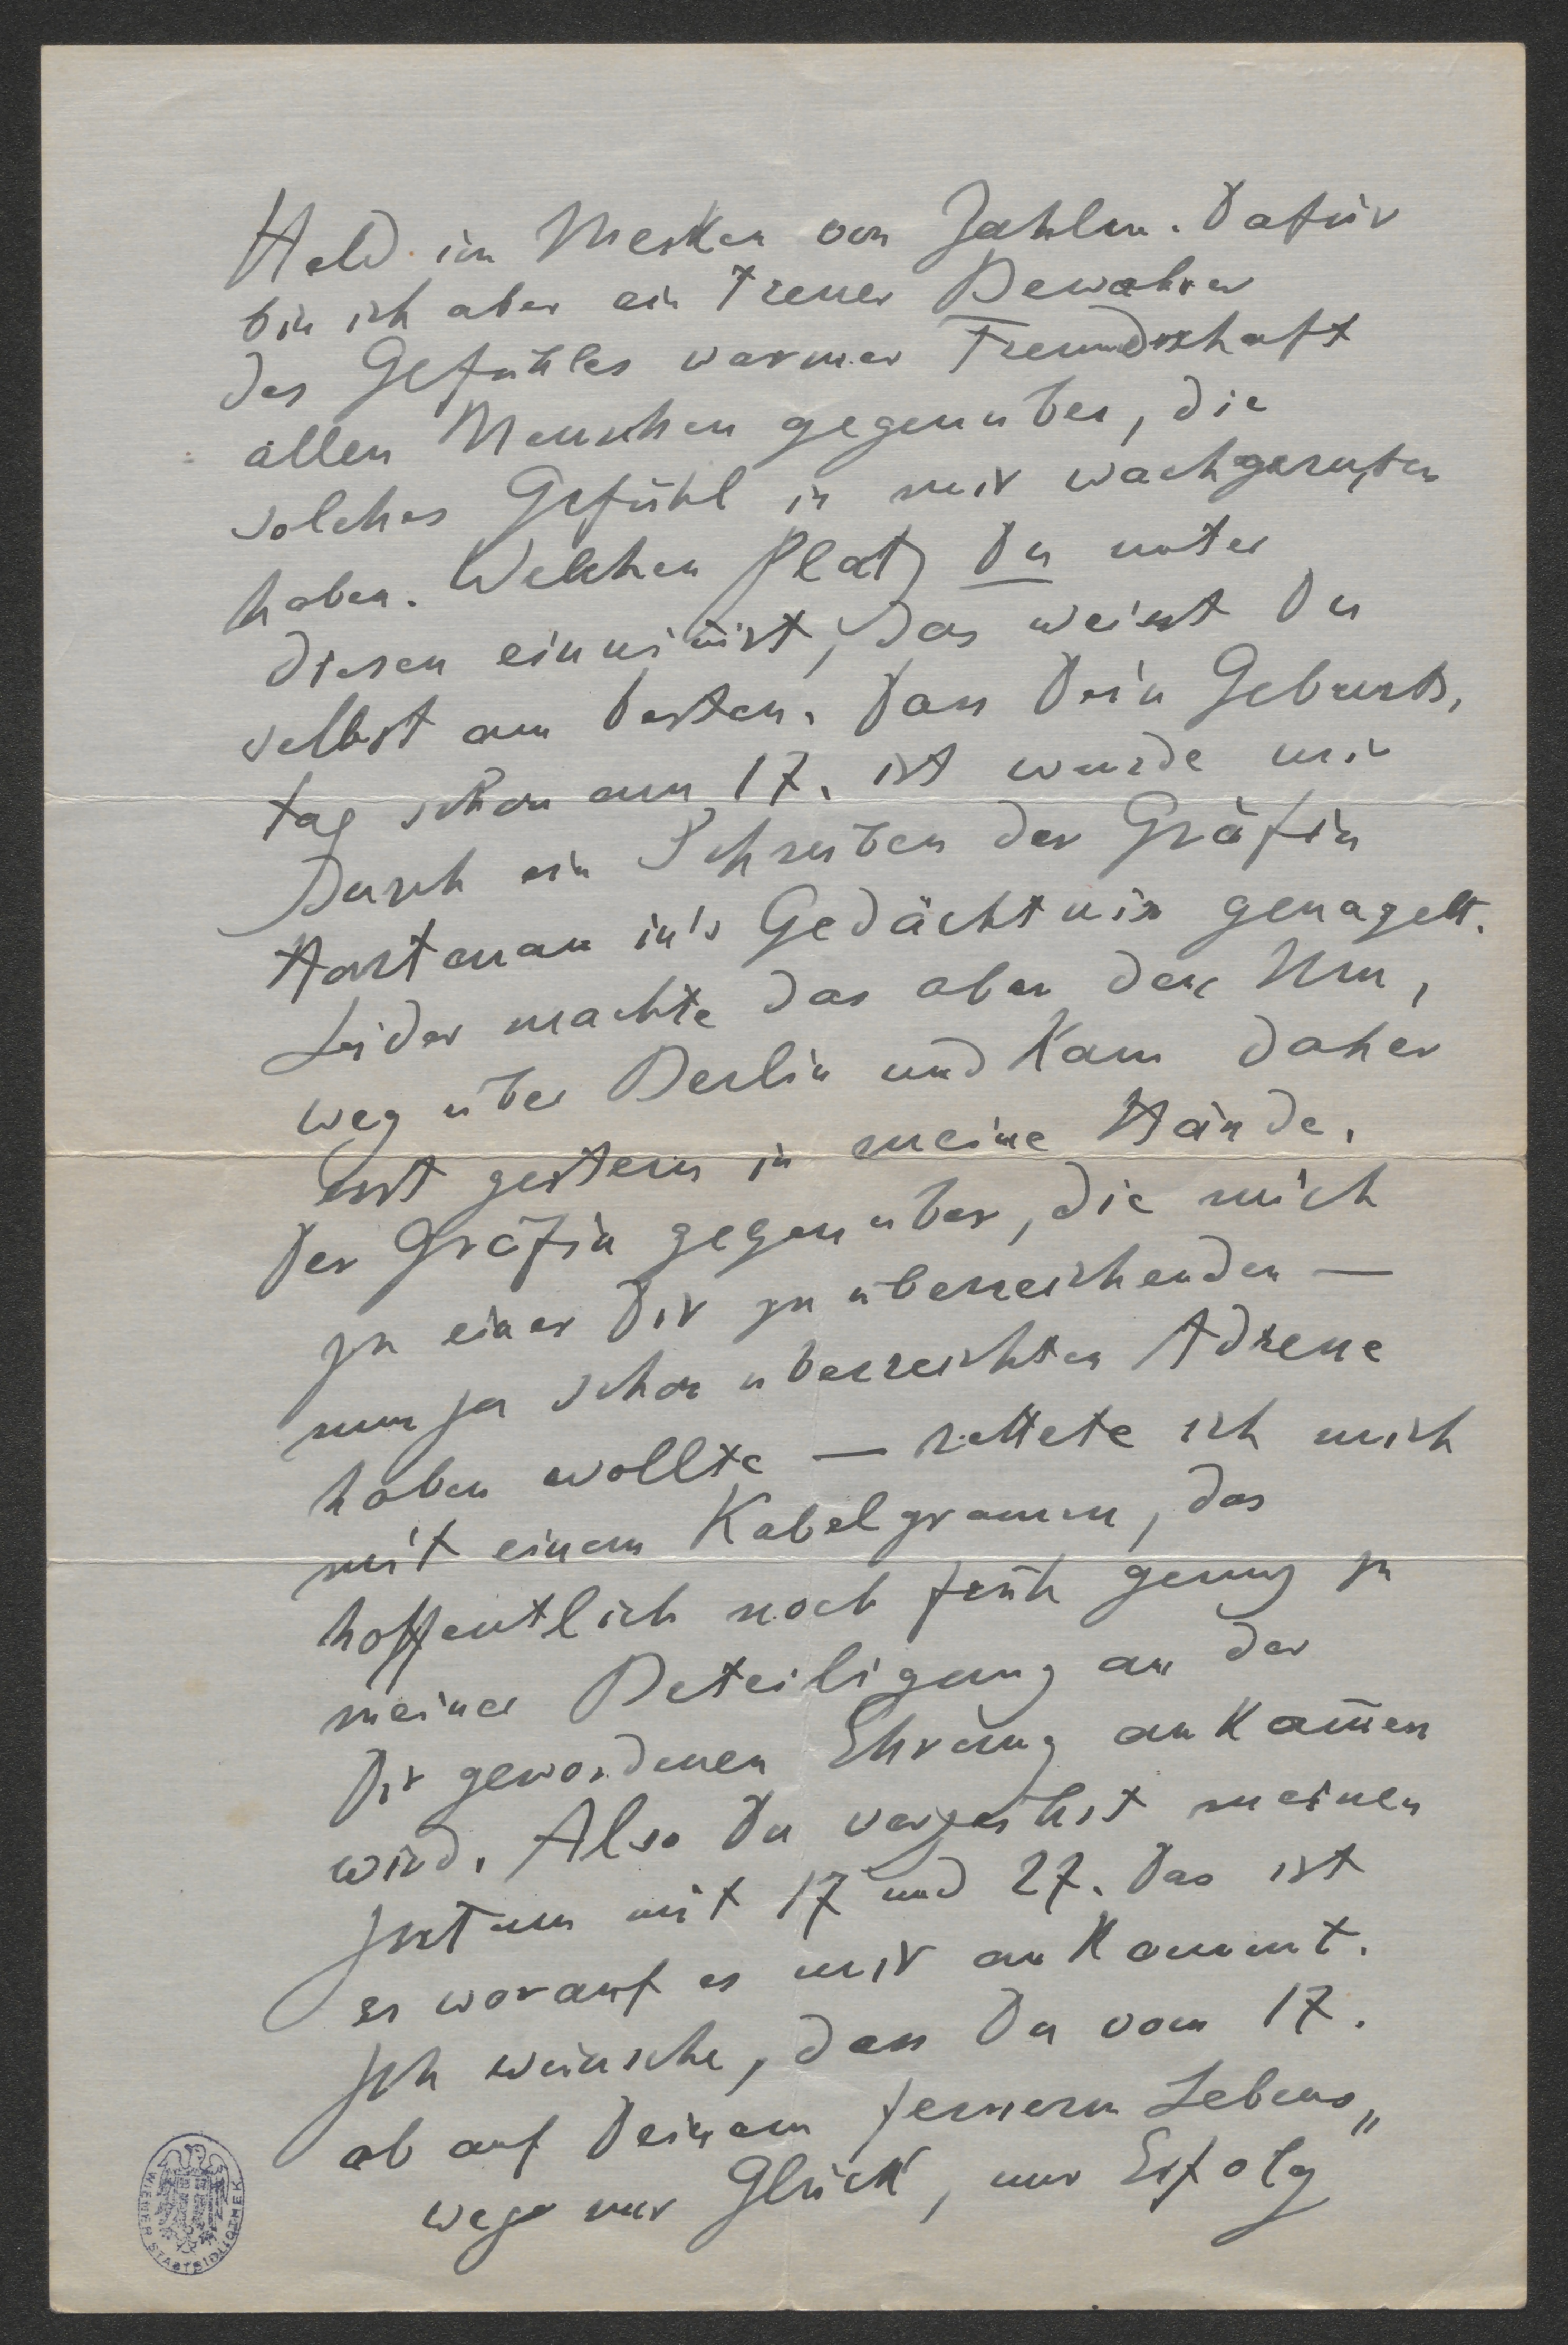 Held im Merken von Zahlen. Dafür
bin ich aber ein treuer Bewahrer
des Gefühles warmer Freundschaft
allen Menschen gegenüber, die
solches Gefühl in mir wachgerufen
haben. Welchen Platz Du unter
diesen einnim̅st, das weisst Du
selbst am besten. Dass Dein Geburts,
tag schon am 17. ist wurde mir
durch ein Schreiben der Gräfin
Hartenau in's Gedächtniss genagelt.
Leider machte das aber den Um,
weg über Berlin und kam daher
erst gestern in meine Hände.
Der Gräfin gegenüber, die mich
zu einer Dir zu überreichenden —
nun ja schon überreichten Adresse
haben wollte — rettete ich mich
mit einem Kabelgramm, das
hoffentlich noch früh genug zu
meiner Beteiligung an der
Dir gewordenen Ehrung ankom̅en
wird. Also Du verzeihst meinen
Irrtum mit 17 und 27. Das ist
es worauf es mir ankommt.
Ich wünsche, dass Du vom 17.
ab auf Deinem fernern Lebens„
wege nur Glück, nur Erfolg
WIENER STADTBIBLIOTHEK